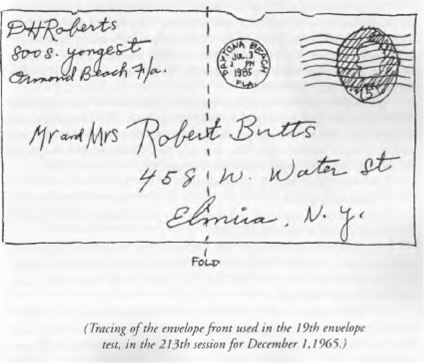 DHRoberts
800 s. yonge st
Ormond Beach Fla.
DAYTONA BEACH
JUL. 3
PM
1965
FLA.
5¢
Mr and Mrs Robert Butts
458 W. Water St
Elmira, N.Y.
FOLD
(Tracing of the envelope front used in the 19th envelope
test, in the 213th session for December 1,1965.)